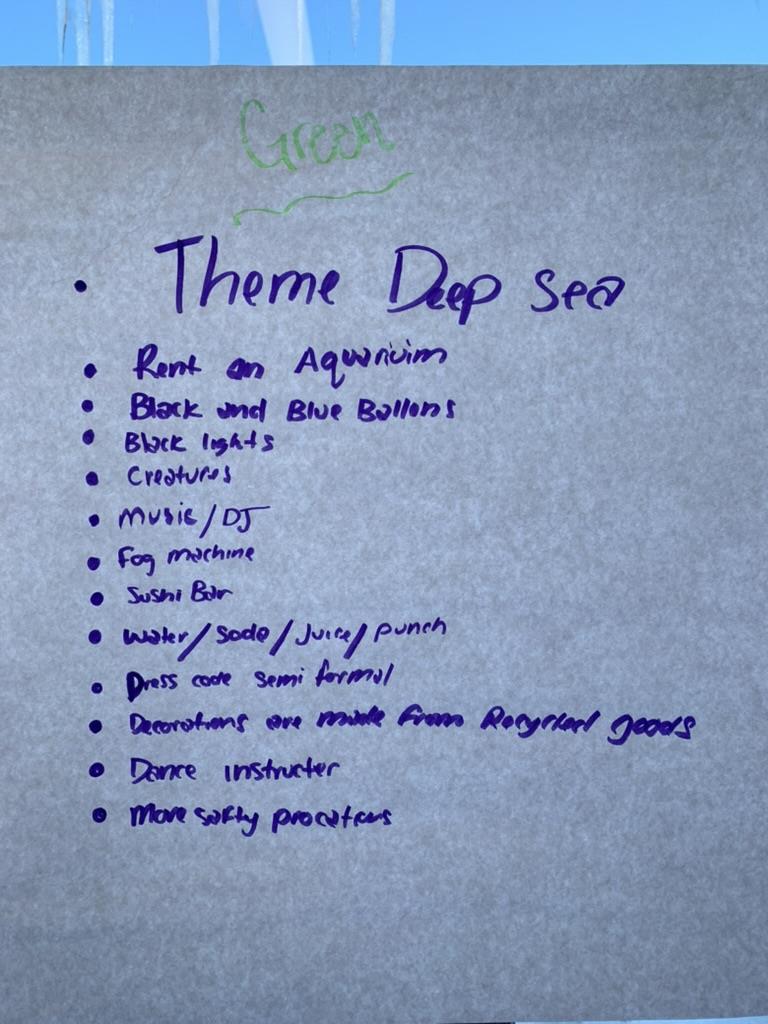 Green
• Theme Deep Sea
• Rent an Aquarium
• Black and Blue Ballons
• Black lights
• Creatures
• Music/DJ
• Fog machine
• Sushi Bar
• Water/Soda/Juice/punch
• Dress code semi formal
• Decorations are made from Recycled goods
• Dance instructer
• More safty procations